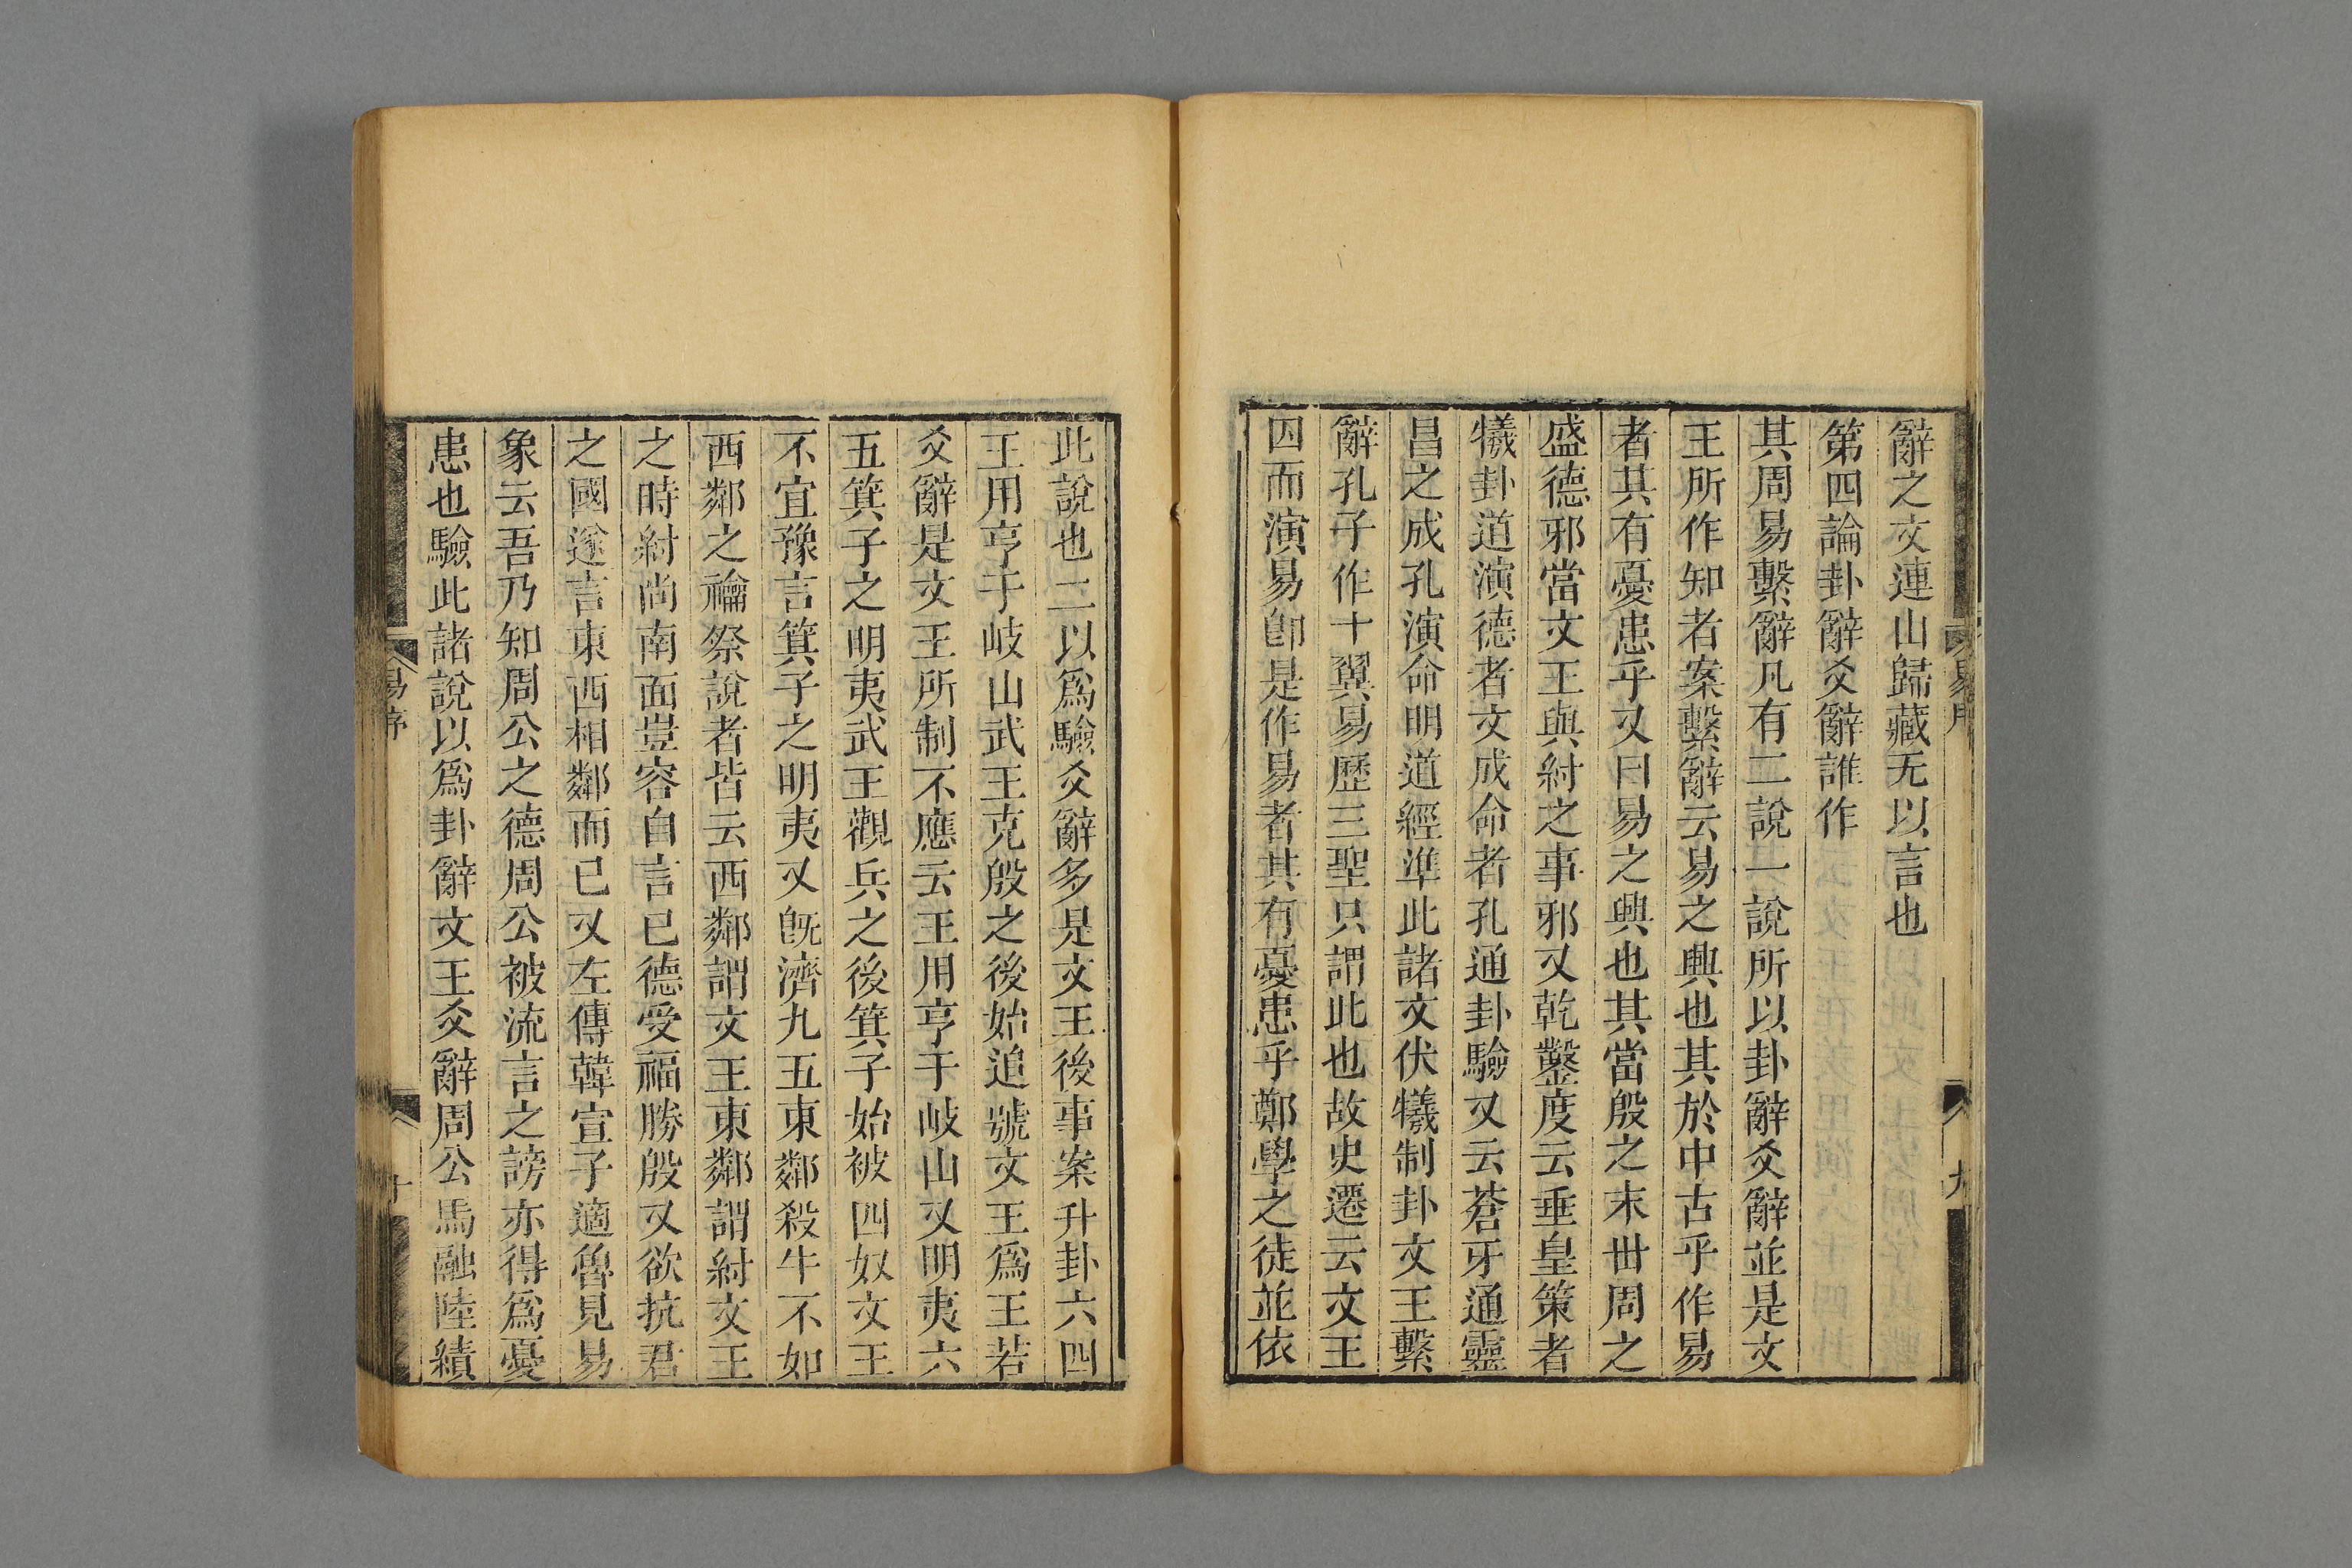 辭之文連山歸藏无以言也
第四論卦辭爻辭誰作
其周易繫辭凡有二說一說所以卦辭爻辭並是文
王所作知者案繫辭云易之興也其於中古乎作易
者其有憂患乎又曰易之興也其當殷之末世周之
盛德邪當文王與紂之事邪又乾鑿度云垂皇策者
犧卦道演德者文成命者孔通卦驗又云蒼牙通靈
昌之成孔演命明道經準此諸文伏犧制卦文王繫
辭孔子作十翼易歷三聖只謂此也故史遷云文王
囚而演易卽是作易者其有憂患乎鄭學之徒並依
易序
九
此說也二以爲驗爻辭多是文王後事案升卦六四
王用亨于岐山武王克殷之後始追號文王爲王若
爻辭是文王所制不應云王用亨于岐山又明夷六
五箕子之明夷武王觀兵之後箕子始被囚奴文王
不宜豫言箕子之明夷又旣濟九五東鄰殺牛不如
西鄰之禴祭說者皆云西鄰謂文王東鄰謂紂文王
之時紂尚南面豈容自言已德受福勝殷又欲抗君
之國遂言東西相鄰而已又左傳韓宣子適魯見易
象云吾乃知周公之德周公被流言之謗亦得爲憂
患也驗此諸說以爲卦辭文王爻辭周公馬融陸績
易序
十